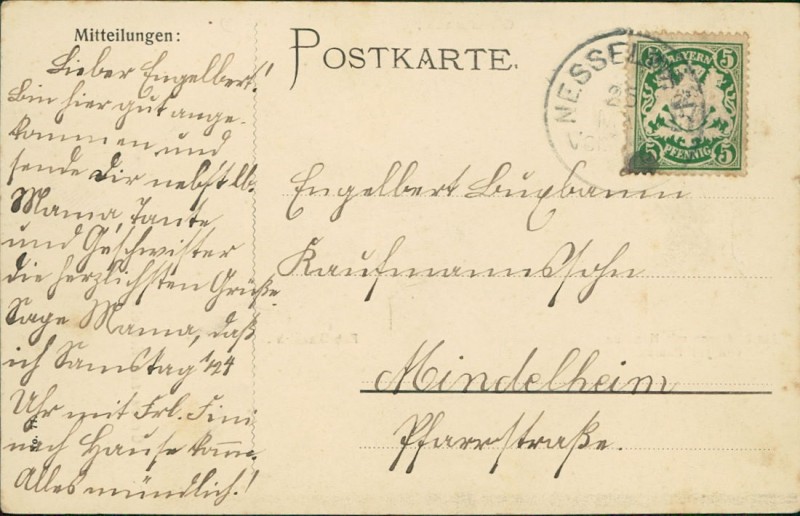 Mitteilungen:
Lieber Engelbert!
Bin hier gut ange-
kommen und
sende Dir nebst lb.
Mama, Tante
und Geschwister
die herzlichsten Grüße.
Sage Mama, daß
ich Samstag 1/24
Uhr mit Frl. Fini
nach Hause komme.
Alles mündlich!
POSTKARTE.
NESSEL
5 BAYERN 5
5 PFENNIG 5
Engelbert Buxbaum
Kaufmannssohn
Mindelheim
Pfarrstraße.